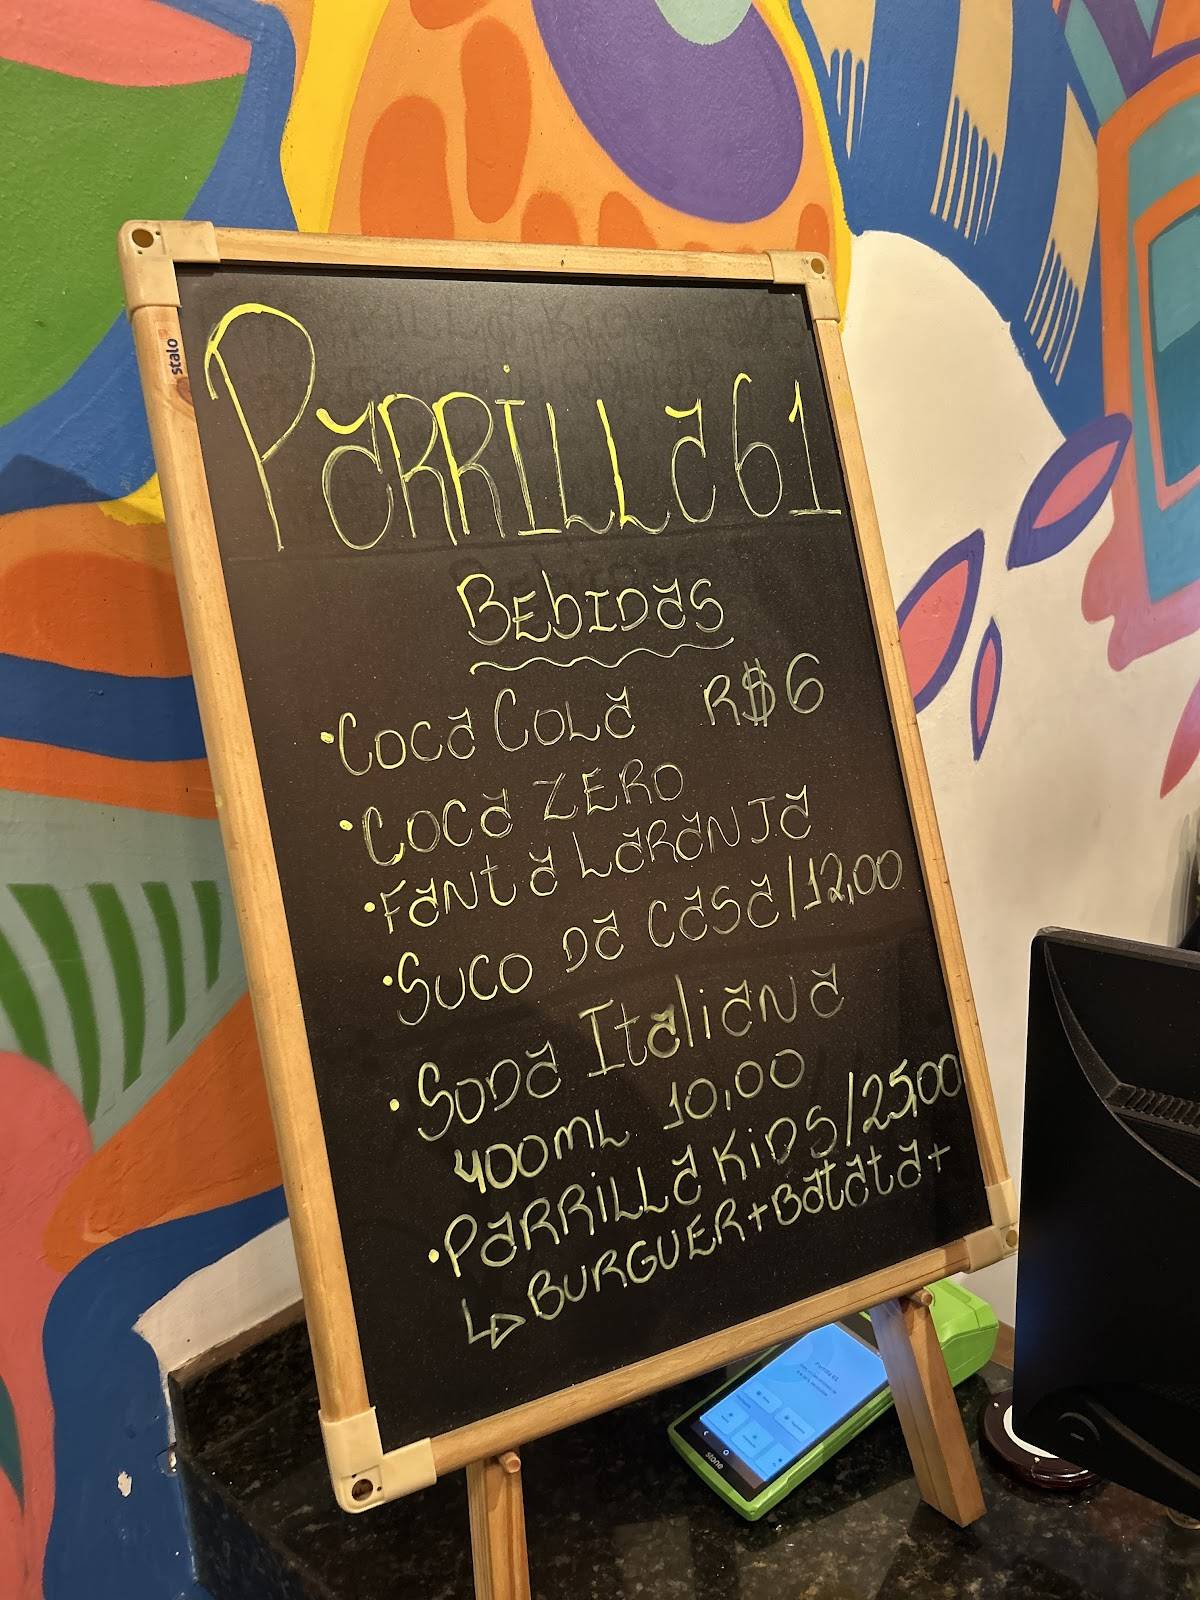 stalo
PARRILLA 61
BEbIDAS
•COCA COLA R$6
•COCA ZERO
•FANTA LARANJA
•SUCO DA CASA/12,00
•SODA ItaliANA
400ML 10,00
•PARRILLA KiDS/25,00
↳BURGUER+BAtAtA+
Parrilla 61
stone